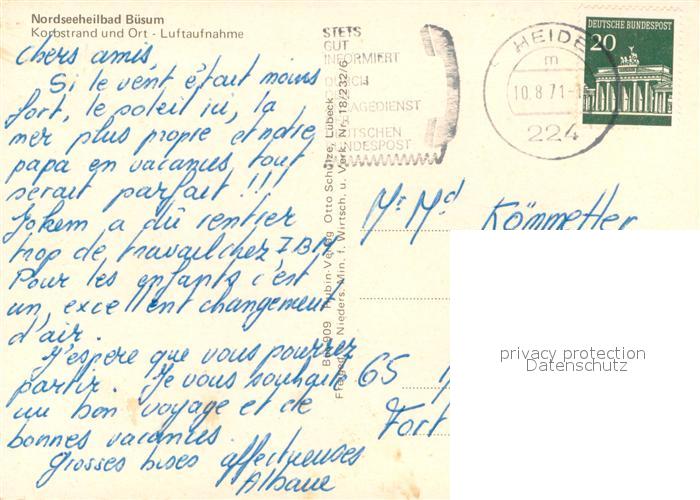 Nordseeheilbad Büsum
Korbstrand und Ort - Luftaufnahme
chers amis,
Si le vent était moins
fort, le soleil ici, la
mer plus propre et notre
papa en vacances tout
serait parfait !!!
Jokem a dû rentrer
trop de travail chez IBM
Pour les enfants c'est
un excellent changement
d'air.
J'espère que vous pourrez
partir. Je vous souhaite
un bon voyage et de
bonnes vacances.
Grosses bises affectueuses
Albane
STETS
GUT
INFORMIERT
DURCH
DEUTSCHEN
BUNDESPOST
HEIDE
m
10.8.71
224
DEUTSCHE BUNDESPOST
20
Rubin-Verlag Otto Schulze, Lübeck
Nieders. Min. f. Wirtsch. u. Verk. Nr. 18/232/6
Mr Md Kömmetter
65
Fort
privacy protection
Datenschutz